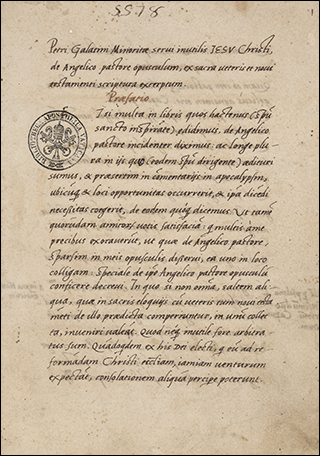 5578
1
Petri Galatini Minoritæ servi inutilis IESV Christi,
de Angelico pastore opusculum, ex sacra veteris et novi
testamenti scriptura excerptum
Præfatio
Tsi multa in libris quos hactenus (Spũ
sancto inspirãte) edidimus, de Angelico
pastore incidenter diximus, ac longe plu
ra in ijs quos (eodem Spũ dirigente) addituri
sumus, et præsertim in comentarijs in apocalypsim,
ubicuq; et loci opportunitas occurrerit, et ipã dicẽdi
necessitas coegerit, de eodem quoq; dicemus. Ut tamẽ
quorundam amicorũ votis satisfaciã: qui multis a me
precibus exoraverit, ut quæ de Angelico pastore,
sparsim in meis opusculis disserui, ea uno in loco
colligam: Speciale de ipo Angelico pastore opusculũ
conficere decrevi. In quo si non omnia, saltem ali
qua, quæ in sacris eloquijs cũ veteris tum novi testa
mẽti de illo prædicta comperiuntur, in unũ collec
ta, inveniri valeãt. Quod neq; inutile fore arbitra
tus sum. Quandoqdem ex his Dei electi, qui eũ ad re
formandam Christi ecclesiam, iamiam venturum
expectãt, consolationem aliquã percipe poterunt.